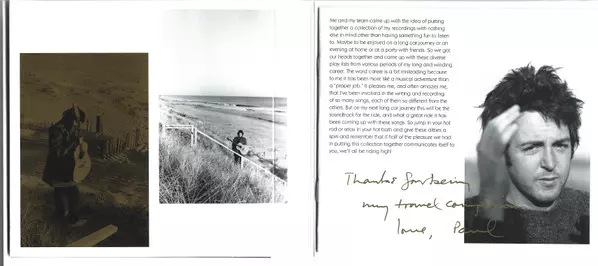 Me and my team came up with the idea of putting
together a collection of my recordings with nothing
else in mind other than having something fun to listen
to. Maybe to be enjoyed on a long car journey or an
evening at home or at a party with friends. So we got
our heads together and came up with these diverse
play lists from various periods of my long and winding
career. The word career is a bit misleading because
to me it has been more like a musical adventure than
a "proper job." It pleases me, and often amazes me,
that I've been involved in the writing and recording
of so many songs, each of them so different from the
others. But on my next long car journey this will be the
soundtrack for the ride, and what a great ride it has
been coming up with these songs. So jump in your hot
rod or relax in your hot bath and give these oldies a
spin and remember that if half of the pleasure we had
in putting this collection together communicates itself to
you, we'll all be riding high!
Thanks for being
my travel
love, Paul